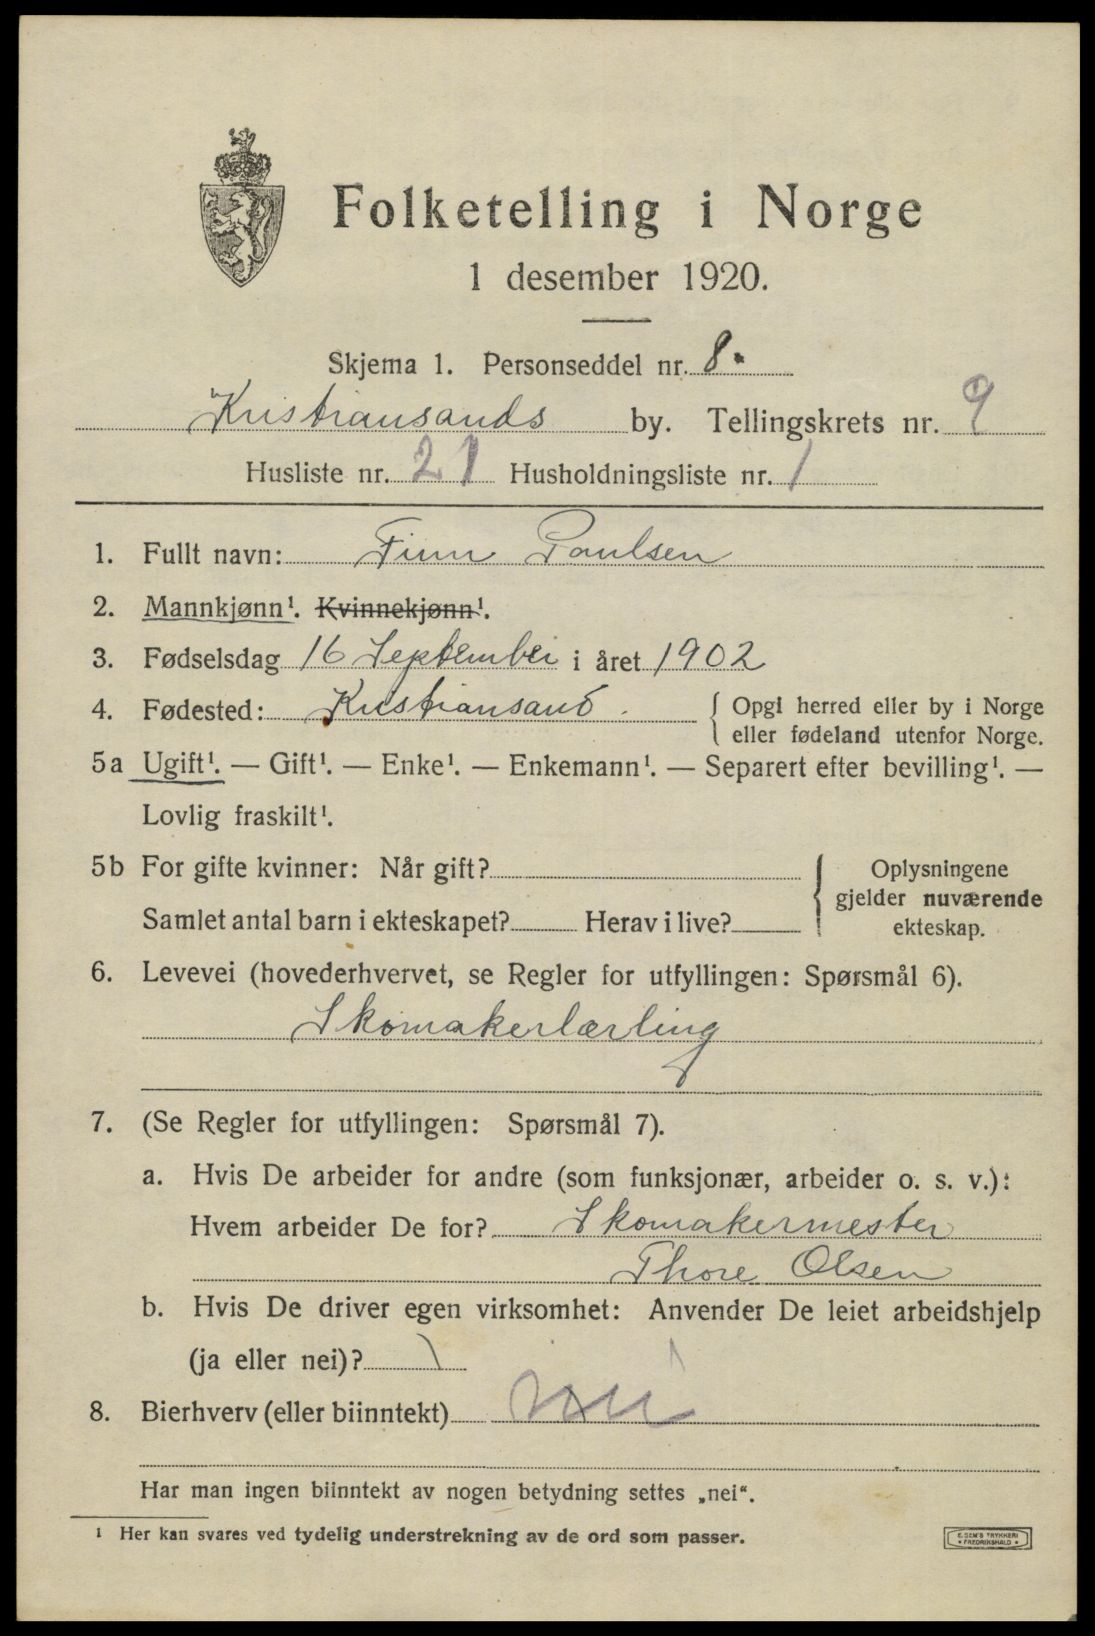 Folketelling i Norge
1 desember 1920.
Skjema 1. Personseddel nr. 8.
Kristiansands by. Tellingskrets nr. 9
Husliste nr. 21 Husholdningsliste nr. 1
1. Fullt navn: Finn Paulsen
2. Mannkjønn¹. Kvinnekjønn¹.
3. Fødselsdag 16 September i året 1902
4. Fødested: Kristiansand. { Opgi herred eller by i Norge
eller fødeland utenfor Norge.
5a Ugift¹. — Gift¹. — Enke¹. — Enkemann¹. — Separert efter bevilling¹. —
Lovlig fraskilt¹.
5b For gifte kvinner: Når gift? { Oplysningene
gjelder nuværende
Samlet antal barn i ekteskapet? Herav i live? ekteskap.
6. Levevei (hovederhvervet, se Regler for utfyllingen: Spørsmål 6).
Skomakerlærling
7. (Se Regler for utfyllingen: Spørsmål 7).
a. Hvis De arbeider for andre (som funksjonær, arbeider o. s. v.):
Hvem arbeider De for? Skomakermester
Thore Olsen
b. Hvis De driver egen virksomhet: Anvender De leiet arbeidshjelp
(ja eller nei)? \
8. Bierhverv (eller biinntekt) nei
Har man ingen biinntekt av nogen betydning settes „nei“.
¹ Her kan svares ved tydelig understrekning av de ord som passer.
E. SEM'S TRYKKERI
• FREDRIKSHALD •